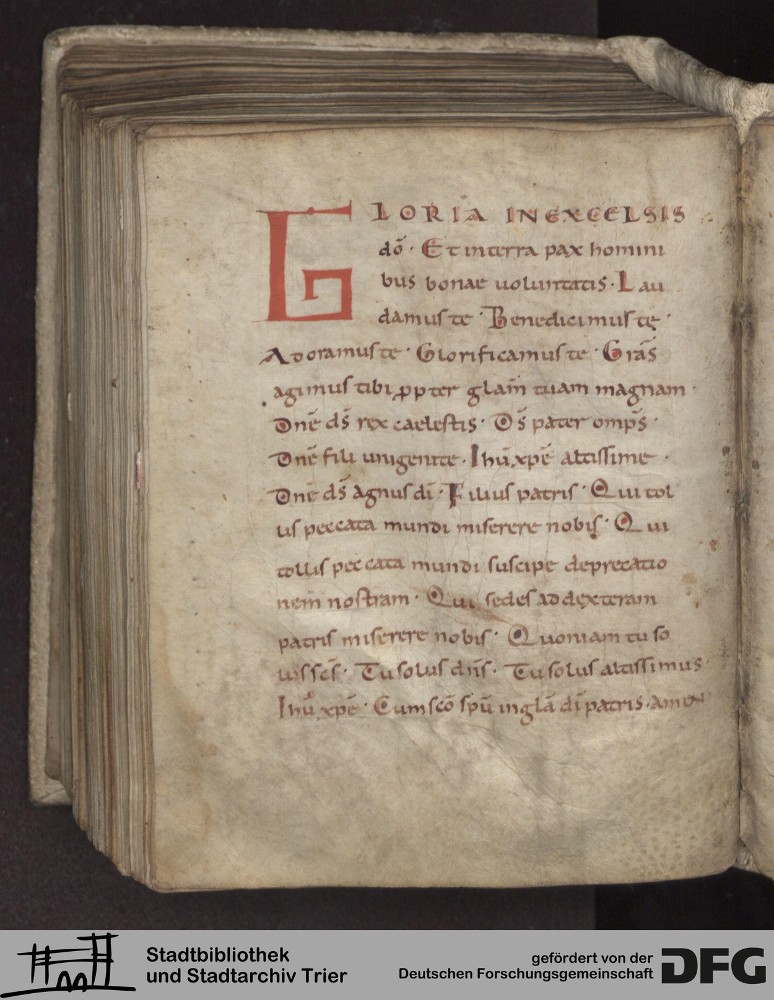 GLORIA IN EXCELSIS
dō · Et in terra pax homini
bus bonae uoluntatis · Lau
damus te · Benedicimus te ·
Adoramus te · Glorificamus te · Gras̄
agimus tibi ꝓpter glam̄ tuam magnam ·
Dnē ds̄ rex caelestis · Ds̄ pater omp̄s ·
Dnē fili unigenite · Ihū xpē altissime ·
Dnē ds̄ agnus dī · Filius patris · Qui tol
lis peccata mundi miserere nobis · Qui
tollis peccata mundi suscipe deprecatio
nem̄ nostram · Qui sedes ad dexteram
patris miserere nobis · Quoniam tu so
lus scs̄ · Tu solus dns̄ · Tu solus altissimus ·
Ihū xpē · Cum scō spū in glā dī patris · amen
Stadtbibliothek
und Stadtarchiv Trier
gefördert von der
Deutschen Forschungsgemeinschaft
DFG